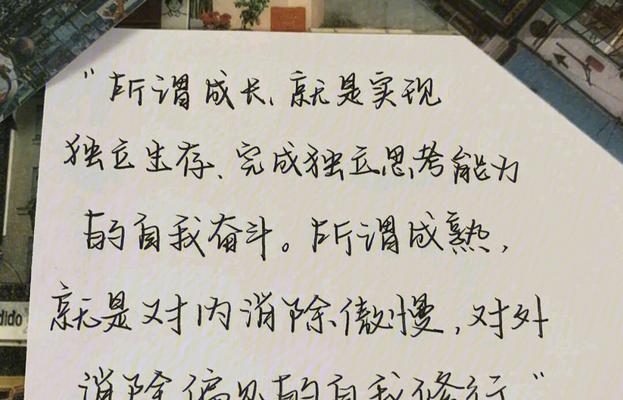 "所谓成长、就是实现
独立生存、完成独立思考能力
的自我奋斗。所谓成熟，
就是对内消除傲慢，对外
消除偏见的自我修行"
dido